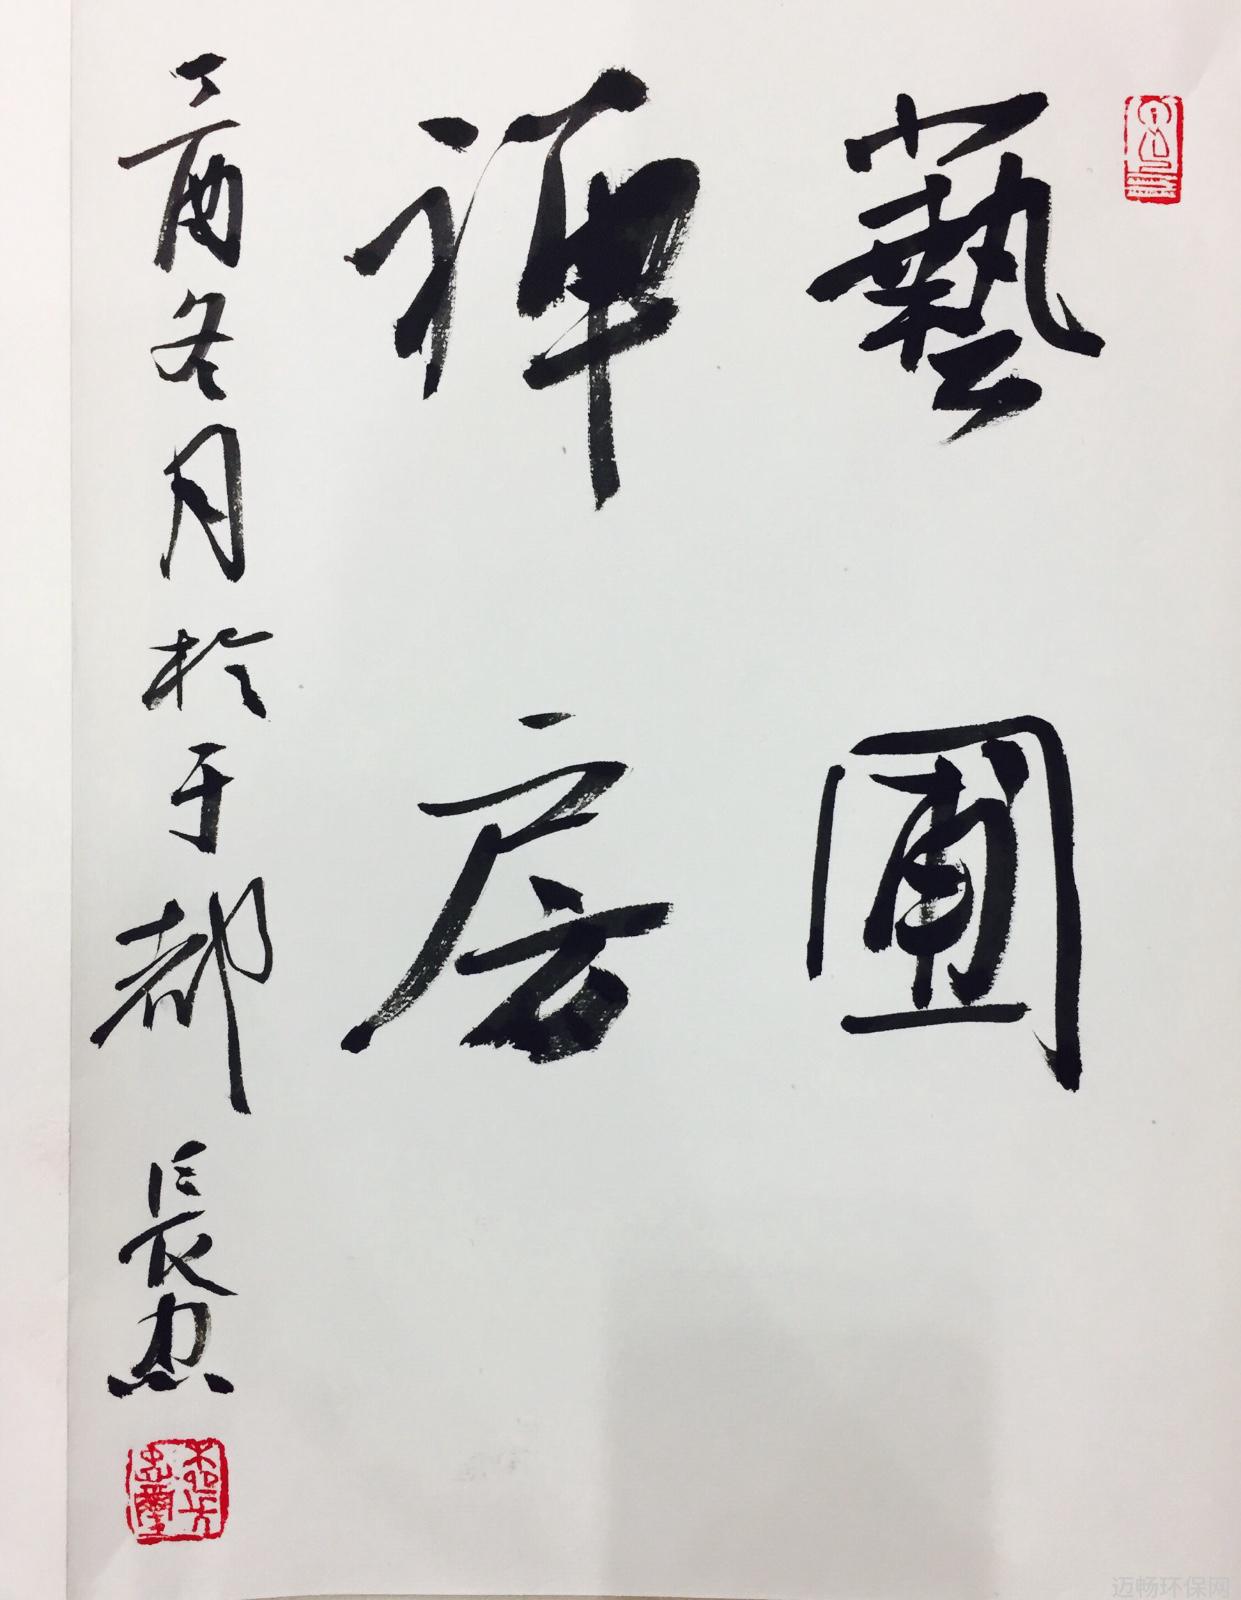 藝圃
禪房
丁酉冬月於于都長忠
迈畅环保网